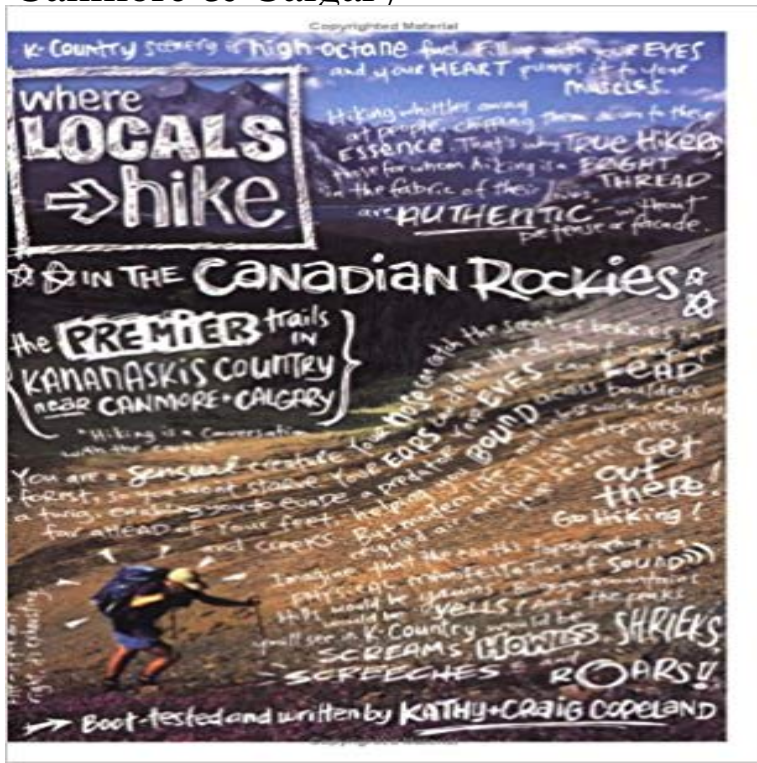 Canmore & Calgary
Copyrighted Material
K-Country scenery is high-octane fuel. Fill up with your EYES
and your HEART pumps it to your
muscles.
where
LOCALS
hike
Hiking whittles away
at people, chipping them down to their
Essence. That's why True Hikers,
those for whom hiking is a BRIGHT
THREAD
in the fabric of their lives,
are AUTHENTIC without
pretense or facade.
IN THE CANADIAN ROCKIES
the PREMIER trails
IN
KANANASKIS COUNTRY
near CANMORE + CALGARY
"Hiking is a conversation
with the earth."
You are a sensual creature. Your nose can catch the scent of berries in
a forest, so you won't starve. Your EARS can detect the
a twig, enabling you to evade a predator. Your EYES can LEAD
far AHEAD of your feet, helping you BOUND across boulders
and creeks. But modern life
recycled air, artificial light deprives
Get
out
there!
Go hiking!
Imagine that the earth's topography is a
physical manifestation of SOUND
Hills would be yawns. mountains
would be yells. and the peaks
you'll see in K-Country would be
SCREAMS HOWLS SHRIEKS
SCREECHES and ROARS!!
Boot-tested and written by KATHY + CRAIG COPELAND
Copyrighted Material